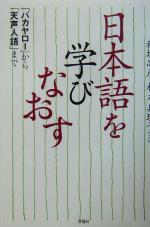 日本語を
学び
なおす
「バカヤロー」から
「天声人語」まで
評論社